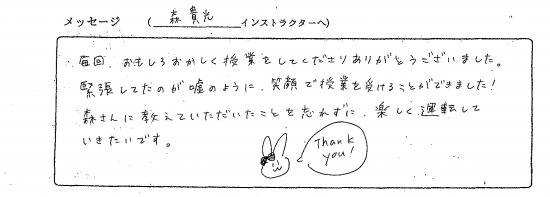 メッセージ (森貴光インストラクターへ)
毎回、おもしろおかしく授業をしてくださりありがとうございました。
緊張してたのが嘘のように、笑顔で授業を受けることができました!
森さんに教えていただいたことを忘れずに、楽しく運転して
いきたいです。
Thank
you!